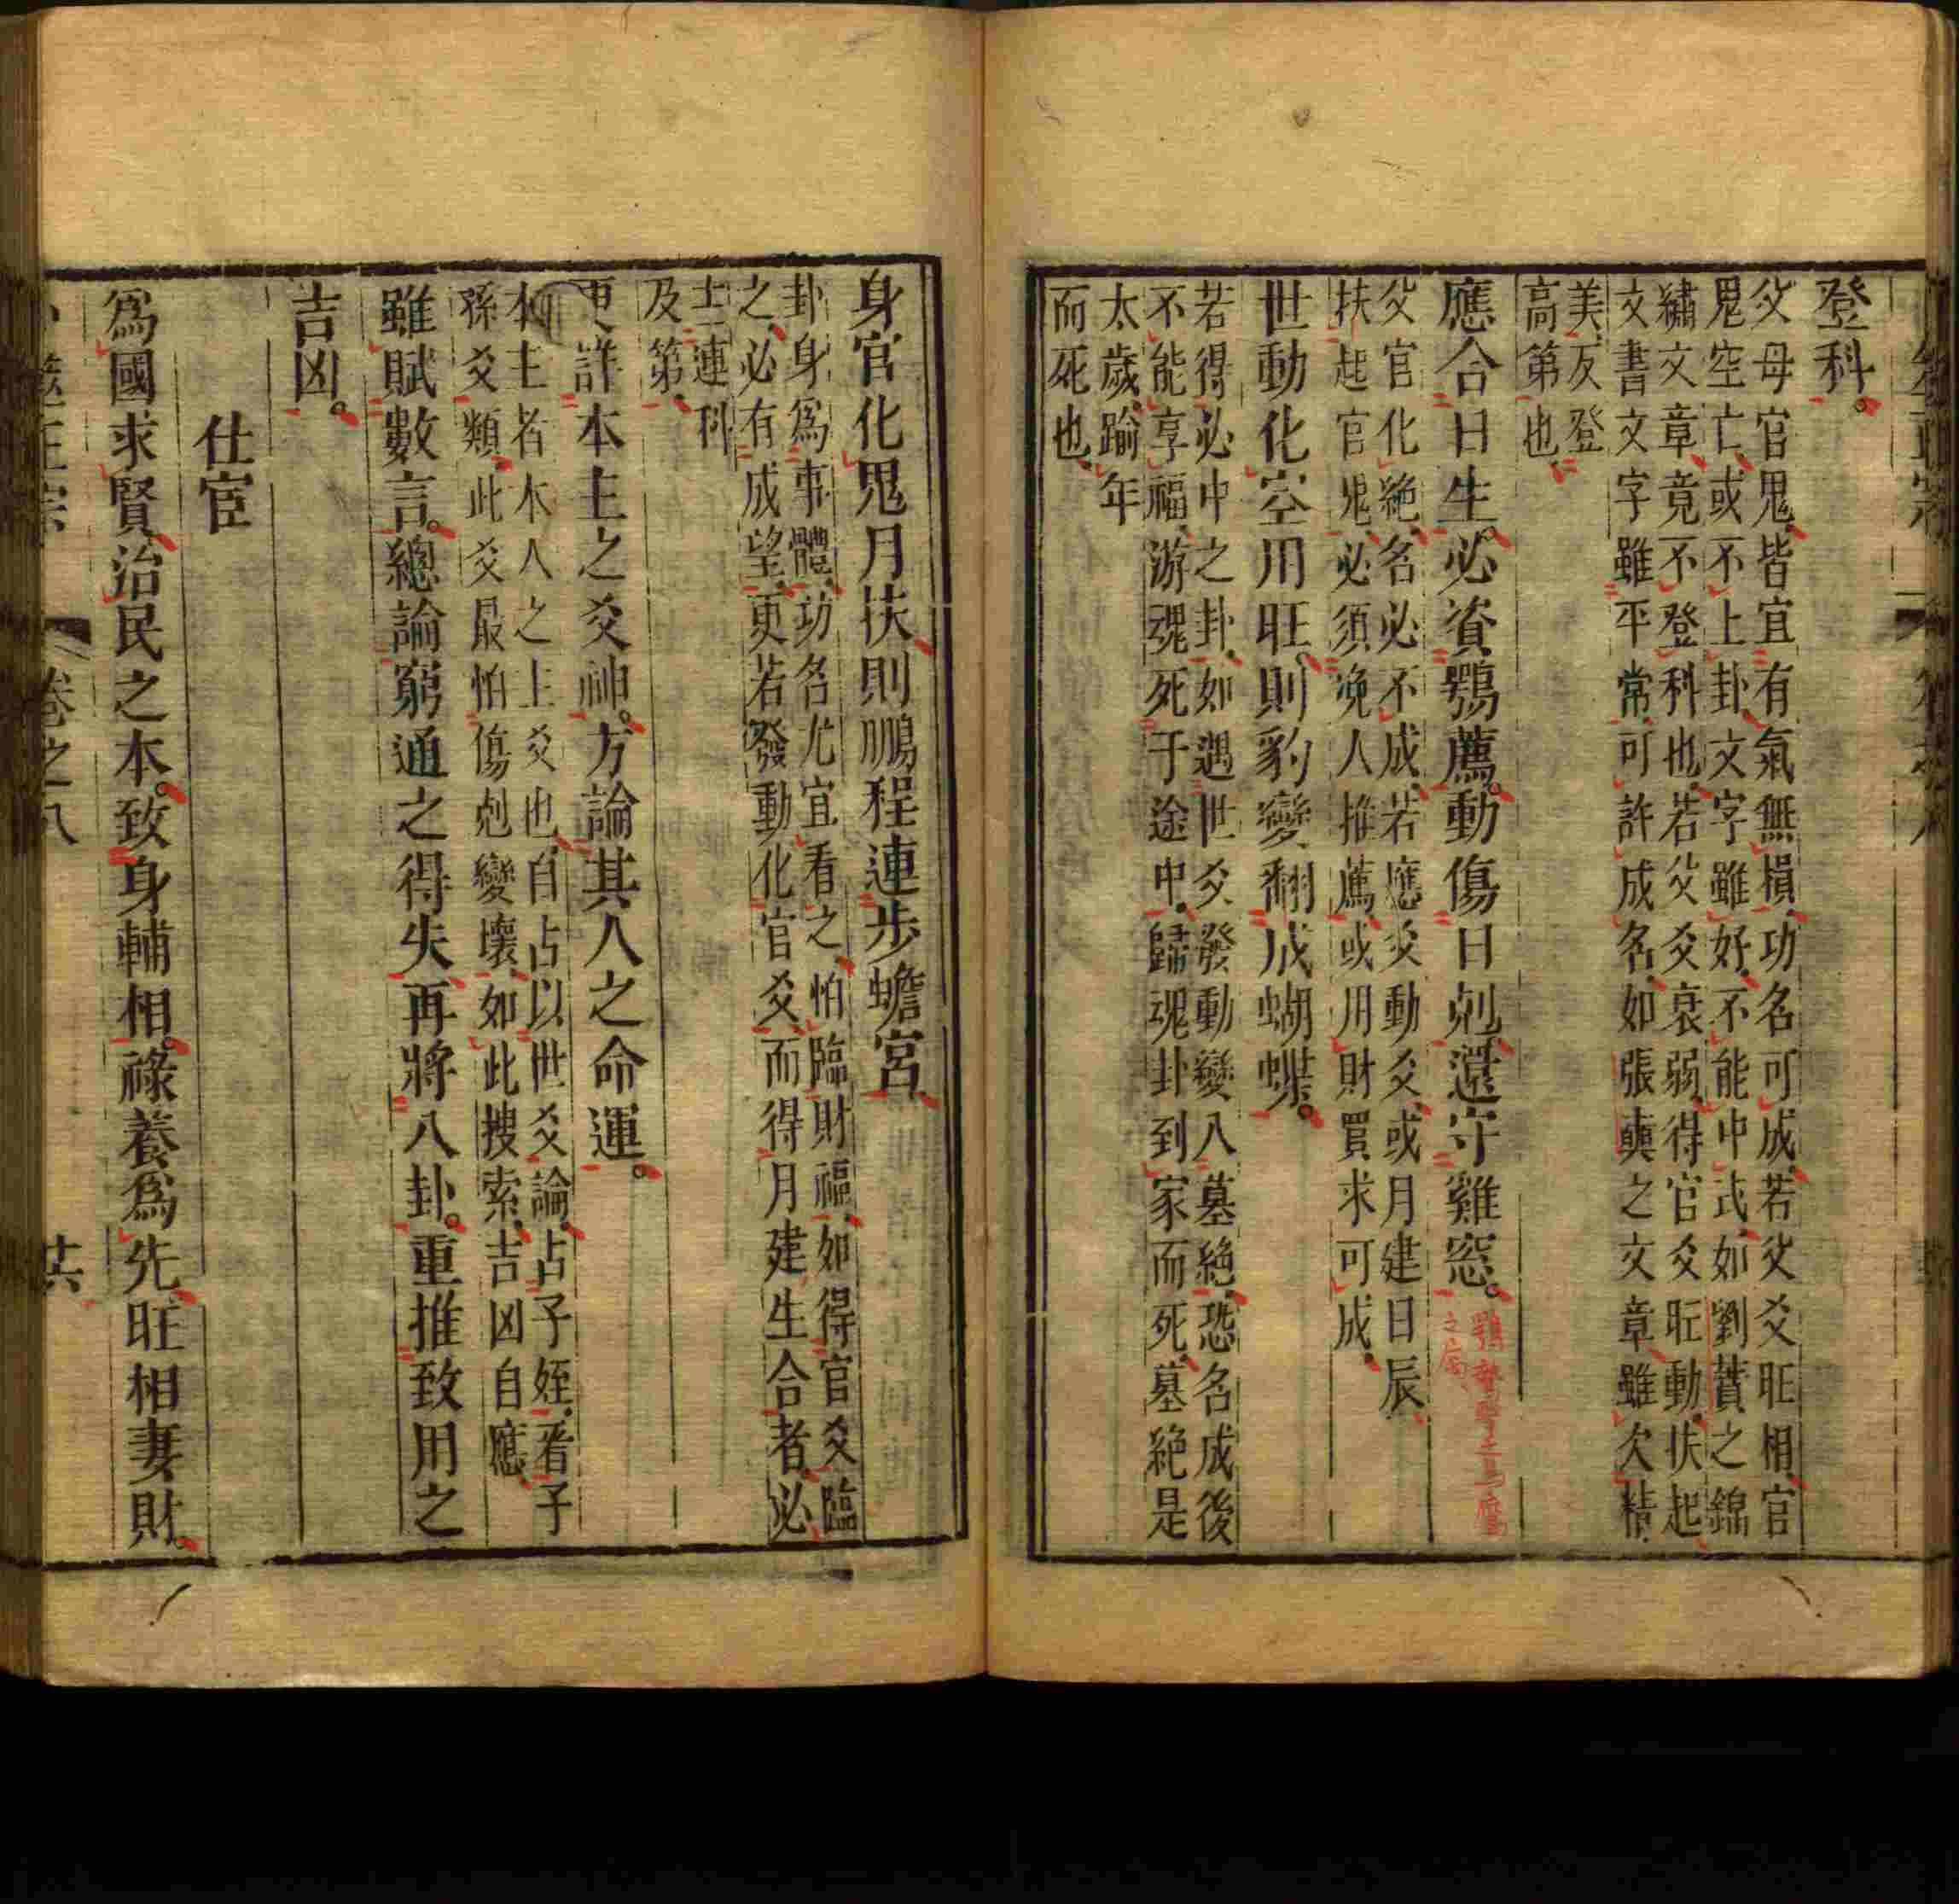 登科。
父母官鬼、皆宜有氣無損、功名可成、若父爻旺相、官
鬼空亡、或不上卦、文字雖好、不能中式、如劉蕡之錦
繡文章、竟不登科也、若父爻衰弱、得官爻旺動、扶起
文書、文字雖平常、可許成名、如張奭之文章、雖欠精
美、反登
高第也、
應合日生。必資鶚薦。動傷日剋。還守雞窓。
鶚鷙擊之鳥鷹
之屬
父官化絶、名必不成、若應爻動爻、或月建日辰
扶起官鬼、必須浼人推薦、或用財買求可成、
世動化空用旺。則豹變翻成蝴蝶。
若得必中之卦、如遇世爻發動變入墓絶、恐名成後
不能享福、游魂死于途中、歸魂卦到家而死、墓絶是
太歲、踰年
而死也、
身官化鬼月扶、則鵬程連步蟾宮、
卦身爲事體、功名尤宜看之、怕臨財福、如得官爻臨
之、必有成望、更若發動化官爻、而得月建生合者、必
士連科
及第、
更詳本主之爻神。方論其人之命運。
本主者、本人之主爻也、自占以世爻論、占子姪、看子
孫爻類、此爻最怕傷剋變壞、如此搜索、吉凶自應、
雖賦數言。總論窮通之得失、再將八卦。重推致用之
吉凶。
仕宦
爲國求賢、治民之本。致身輔相。祿養爲先、旺相妻財。
卷之八
廿六